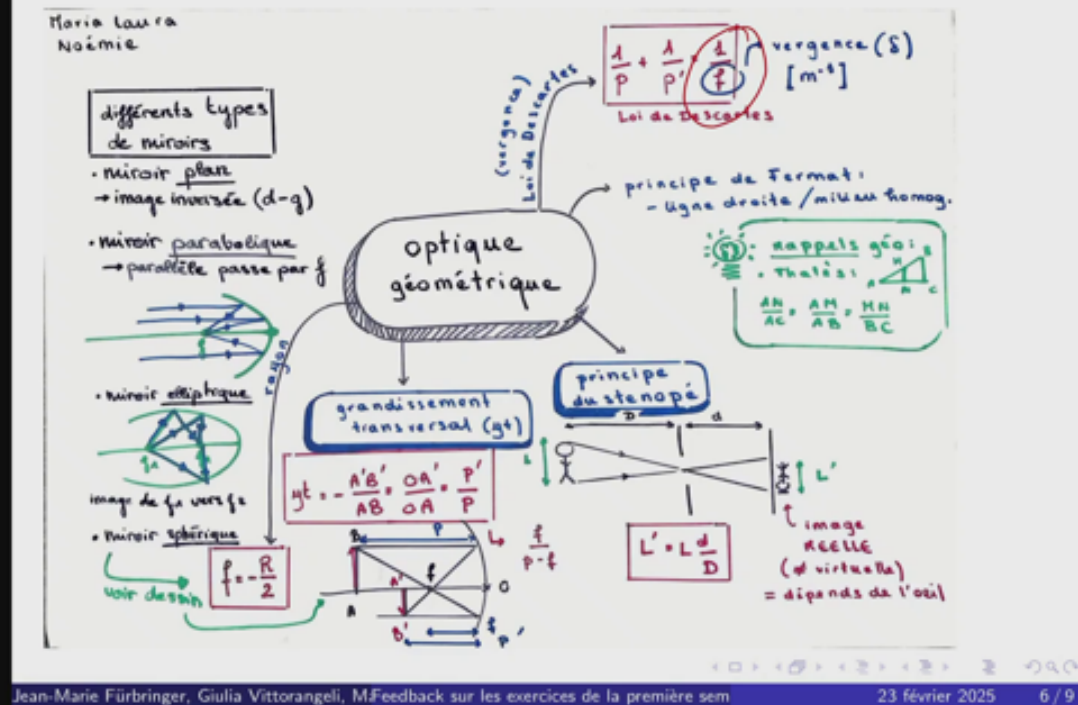 Maria Laura
Noémie
différents types
de miroirs
• miroir plan
→ image inversée (d-g)
• miroir parabolique
→ parallèle passe par f
• miroir elliptique
f₁ f₂
image de f₁ vers f₂
• miroir sphérique
voir dessin
f = - R/2
rayon
optique
géométrique
(vergence)
Loi de Descartes
1/p + 1/p' = 1/f
Loi de Descartes
vergence (δ)
[m⁻¹]
principe de Fermat :
- ligne droite / milieu homog.
Rappels géo :
• Thalès :
A M B N C
AN/AC = AM/AB = MN/BC
grandissement
transversal (γt)
γt = - A'B'/AB = OA'/OA = p'/p
↳ f/p-f
B p
A' f O
A
B' f
p'
principe
du stenopé
D d
L L'
L' = L d/D
image
REELLE
(≠ virtuelle)
= dépends de l'oeil
Jean-Marie Fürbringer, Giulia Vittorangeli, M
Feedback sur les exercices de la première sem
23 février 2025
6 / 9